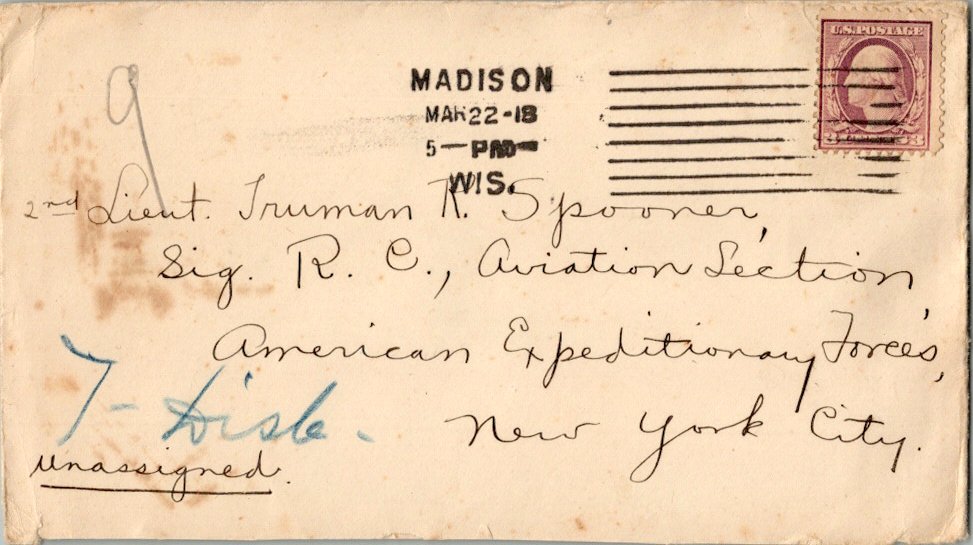 U.S. POSTAGE
3 3
MADISON
MAR 22 -18
5 — PM —
WIS.
9
2nd Lieut. Truman R. Spooner,
Sig. R. C., Aviation Section
American Expeditionary Forces,
New York City.
7 -
unassigned.